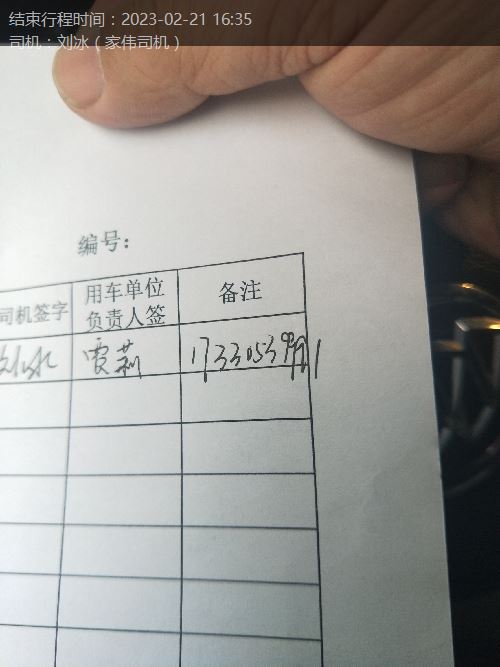 结束行程时间：2023-02-21 16:35
司机：刘冰（家伟司机）
编号：
司机签字
用车单位
负责人签
备注
刘冰
贾莉